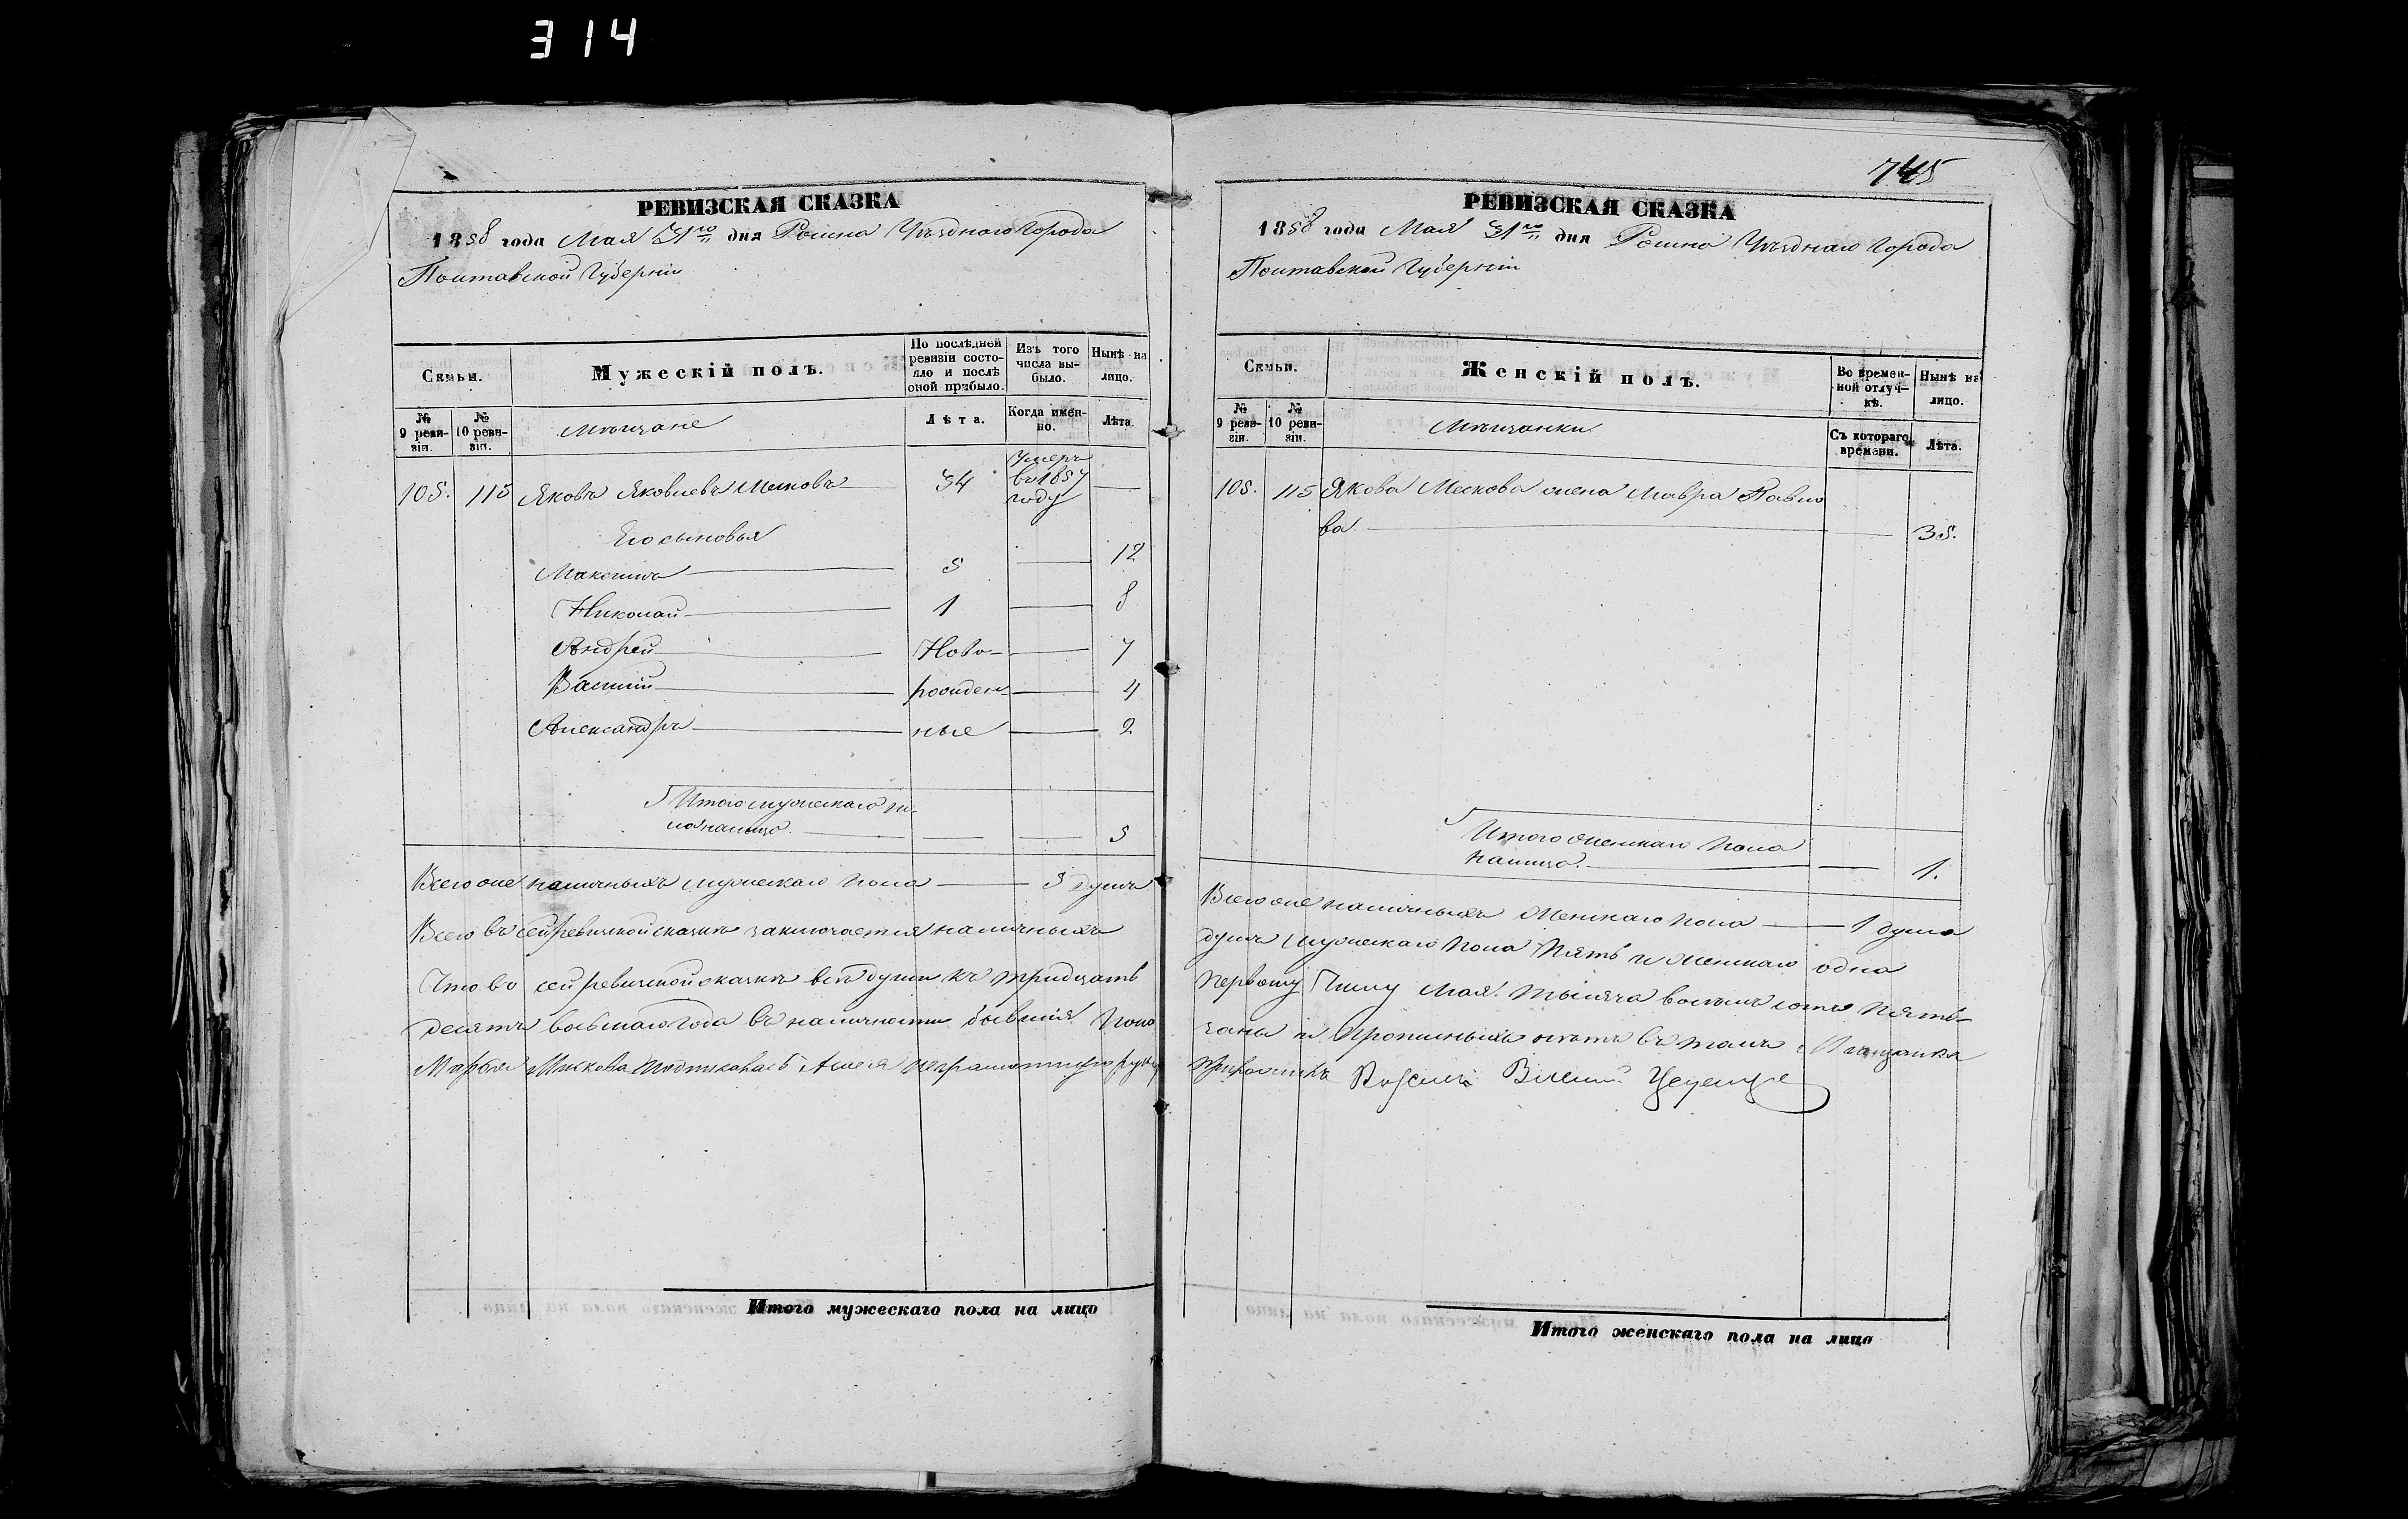 314
РЕВИЗСКАЯ СКАЗКА
1858 года Мая 31го дня Ромна Уѣзднаго Города
Полтавской Губерніи
Семьи.
Мужескій полъ.
По послѣдней ревизіи состояло и послѣ оной прибыло.
Изъ того числа выбыло.
Нынѣ на лицо.
№ 9 ревизіи.
№ 10 ревизіи.
Мѣщане
Лѣта.
Когда именно.
Лѣта.
105. 115 Яковъ Яковлевъ 34 Умеръ въ 1857 году
Его сыновья
Максимъ 5 12
Николай 1 8
Андрей Ново- 7
Василій рожден- 4
Александръ ные 2
Итого мужескаго по-
ла налицо. 5
Всего же наличныхъ мужескаго пола 5 душъ
Всего въ сей ревизской сказкѣ заключается наличныхъ
Что во сей ревизской сказкѣ всѣ души къ тридцать
десятъ восьмаго года въ наличности бывшія пока
неграмотную
Итого мужескаго пола на лицо
745
РЕВИЗСКАЯ СКАЗКА
1858 года Мая 31го дня Ромна Уѣзднаго Города
Полтавской Губерніи
Семьи.
Женскій полъ.
Во временной отлучкѣ.
Нынѣ на лицо.
№ 9 ревизіи.
№ 10 ревизіи.
Мѣщанки
Съ котораго времени.
Лѣта.
105. 115 Якова жена Мавра Павло
ва. 35.
Итого женскаго пола
налицо. 1.
Всего же наличныхъ женскаго пола 1 душа
душъ мужескаго пола пять и женскаго одна
первому числу Мая тысяча восемь сотъ пять-
заны и прописныхъ нѣтъ въ томъ Мѣщанка
Итого женскаго пола на лицо